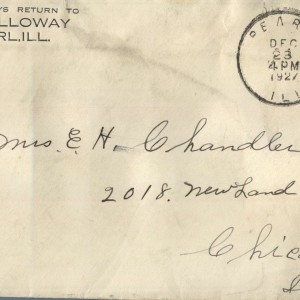 YS RETURN TO
LLOWAY
RL, ILL.
PEAR
DEC
23
4 PM
1927
ILL
Mrs. E. H. Chandler
2018. Newland
Chic